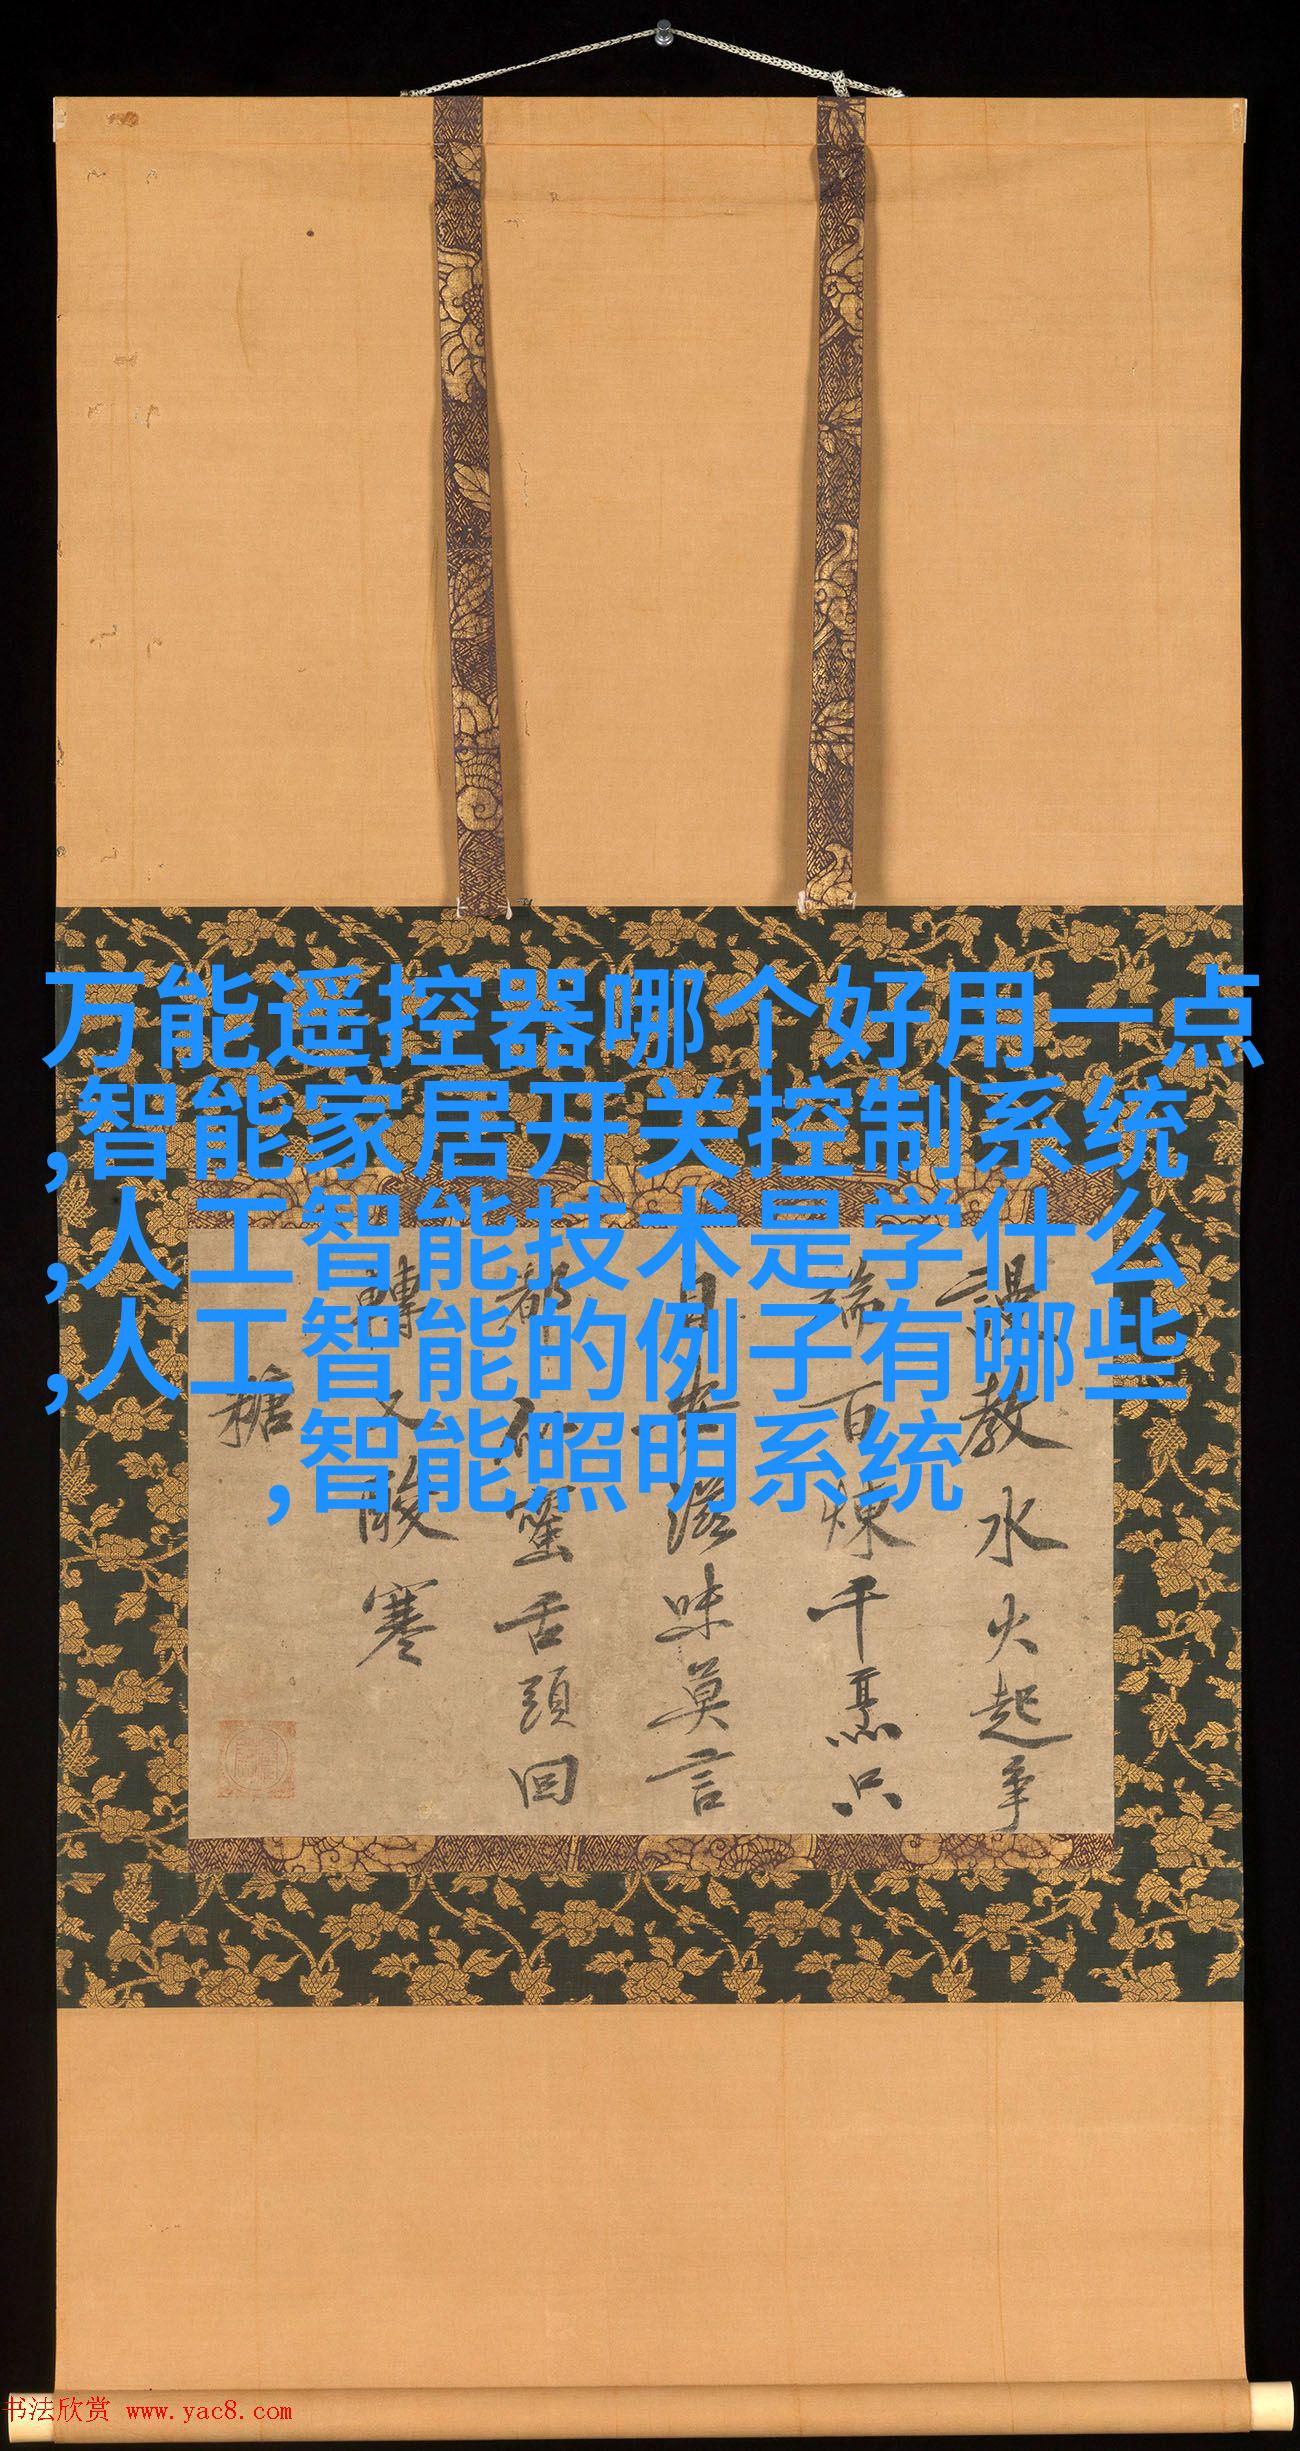 万能遥控器哪个好用一点
,智能家居开关控制系统
,人工智能技术是学什么
,人工智能的例子有哪些
,智能照明系统
教水火起争
百煉千烹只
滋味莫言
蜜舌頭回
轉又酸寒
糖
书法欣赏 www.yac8.com